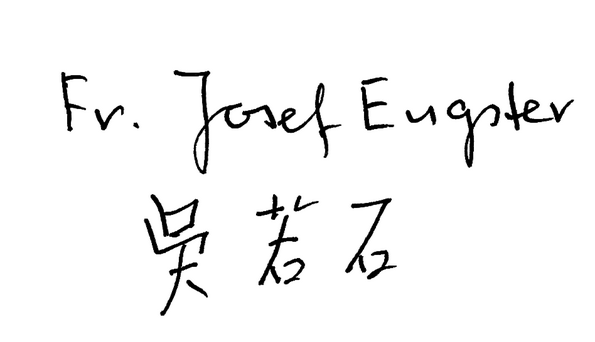 Fr. Josef Eugster
吳若石